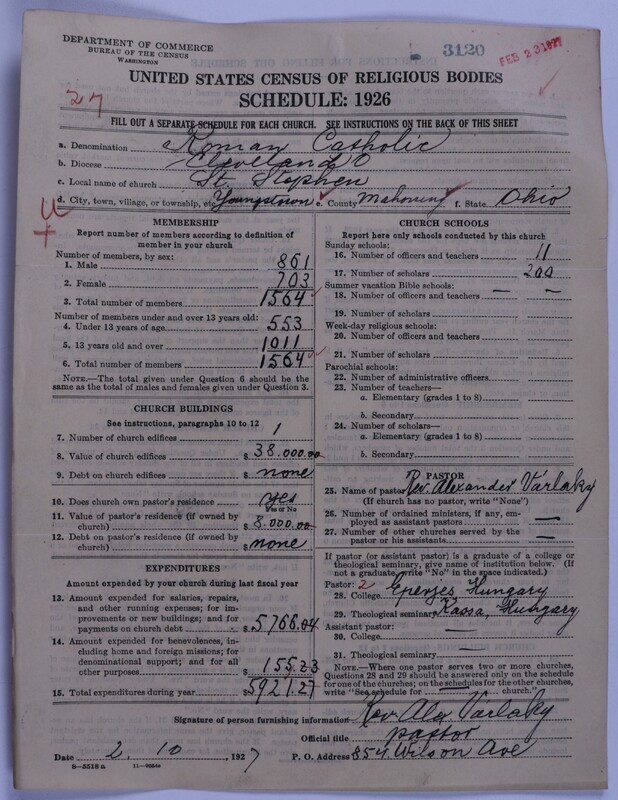 DEPARTMENT OF COMMERCE
BUREAU OF THE CENSUS
WASHINGTON
3120
FEB 23 1927
UNITED STATES CENSUS OF RELIGIOUS BODIES
SCHEDULE: 1926
27
FILL OUT A SEPARATE SCHEDULE FOR EACH CHURCH. SEE INSTRUCTIONS ON THE BACK OF THIS SHEET
a. Denomination Roman Catholic
b. Diocese Cleveland O
c. Local name of church St. Stephen
d. City, town, village, or township, etc Youngstown e. County Mahoning f. State Ohio
MEMBERSHIP
Report number of members according to definition of member in your church
Number of members, by sex:
1. Male 861
2. Female 703
3. Total number of members 1564
Number of members under and over 13 years old:
4. Under 13 years of age 553
5. 13 years old and over 1011
6. Total number of members 1564
NOTE.—The total given under Question 6 should be
same as the total of males and females given under Question 3.
CHURCH BUILDINGS
See instructions, paragraphs 10 to 12
7. Number of church edifices 1
8. Value of church edifices $ 38.000.00
9. Debt on church edifices $ none
10. Does church own pastor's residence yes
Yes or No
11. Value of pastor's residence (if owned by
church) $ 8.000.00
12. Debt on pastor's residence (if owned by
church) $ none
EXPENDITURES
Amount expended by your church during last fiscal year
13. Amount expended for salaries, repairs,
and other running expenses; for im-
provements or new buildings; and for
payments on church debt $ 5766.04
14. Amount expended for benevolences, in-
cluding home and foreign missions; for
denominational support; and for all
other purposes $ 155.23
15. Total expenditures during year $ 5921.27
CHURCH SCHOOLS
Report here only schools conducted by this church
Sunday schools:
16. Number of officers and teachers 11
17. Number of scholars 200
Summer vacation Bible schools: — —
18. Number of officers and teachers
19. Number of scholars
Week-day religious schools:
20. Number of officers and teachers
21. Number of scholars
Parochial schools:
22. Number of administrative officers
23. Number of teachers—
a. Elementary (grades 1 to 8)
b. Secondary
24. Number of scholars—
a. Elementary (grades 1 to 8)
b. Secondary
PASTOR
25. Name of pastor Rev. Alexander Varlaky
(If church has no pastor, write "None")
26. Number of ordained ministers, if any, em-
ployed as assistant pastors —
27. Number of other churches served by the
pastor or his assistants —
If pastor (or assistant pastor) is a graduate of a college or
theological seminary, give name of institution below. (If
not a graduate, write "No" in the space indicated.)
Pastor: 2
28. College Eperjes, Hungary
29. Theological seminary Kassa, Hungary
Assistant pastor:
30. College —
31. Theological seminary —
NOTE.—Where one pastor serves two or more churches,
Questions 28 and 29 should be answered only on the schedule
for one of the churches; on the schedules for the other churches,
write "See schedule for church."
Signature of person furnishing information Rev. Alex Varlaky
Official title pastor
Date 2. 10, 1927 P. O. Address 854. Wilson Ave
8—5518 a